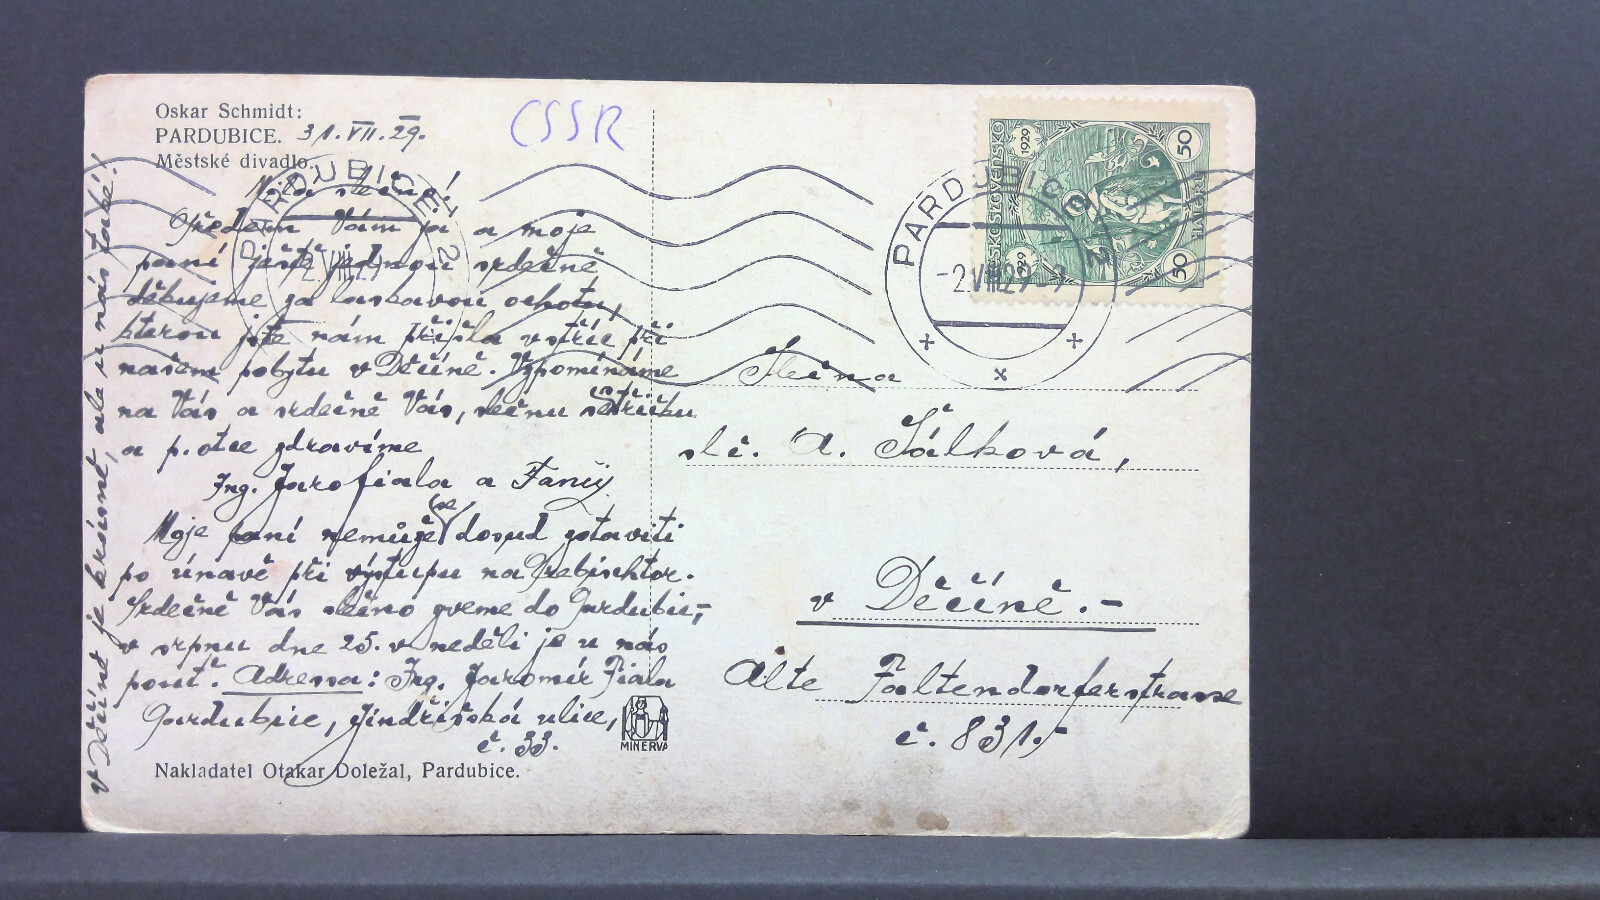 Oskar Schmidt:
PARDUBICE. 31.VII.29.
Městské divadlo.
CSSR
Milá slečno!
Předem Vám já a moje
paní ještě jednou srdečně
děkujeme za laskavou ochotu,
kterou jste nám přišla vstříc při
našem pobytu v Děčíně. Vzpomínáme
na Vás a srdečně Vás, slečnu
a p. otce zdravíme
Ing. Jaro Fiala a
Moje paní nemůže (se) dosud zotaviti
po únavě při výstupu na Prebischtor.
Srdečně Vás slečno zveme do Pardubic,-
v srpnu dne 25. v neděli je u nás
pouť. Adressa: Ing. Jaromír Fiala
Pardubice, Jindřišská ulice,
č. 33.
v Děčíně je krásně, ale u nás také!
MINERVA
Nakladatel Otakar Doležal, Pardubice.
PARDUBICE 2
PARDUBICE 2
-2.VIII.29
ČESKOSLOVENSKO
1929
1929
50
50
HALÉŘŮ
Slečna
slč. A. Šálková,
v Děčíně.-
Alte Faltendorferstrasse
č. 831.-